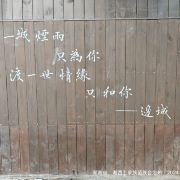 一城煙雨
只為你
渡一世情緣
只和你
——邊城